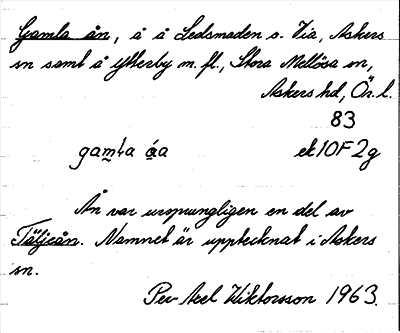 Gamla ån, å å Ledsmaden s. Via, Askers
sn samt å Ytterby m. fl., Stora Mellösa sn,
Askers hd, Ör. l.
83
gamla åa ek10F2g
Ån var urspungligen en del av
Täljeån. Namnet är upptecknat i Askers
sn.
Per Axel Wiktorsson 1963.